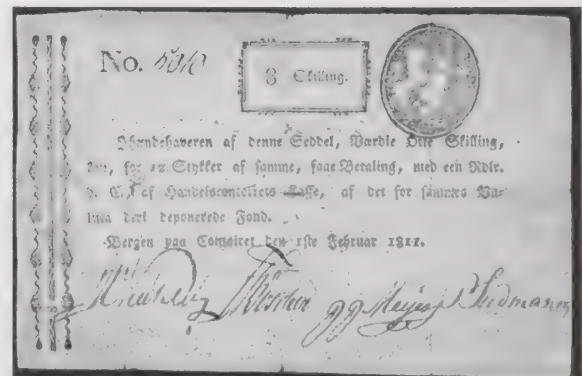 No. 5010
8 Skilling.
Ihændehaveren af denne Seddel, Værdie Otte Skilling,
kan, for 12 Stykker af samme, faae Betaling, med een Rdlr.
D. C., af Handelscontoirets Kasse, af det for sammes Va-
luta deri deponerede Fond.
Bergen paa Contoiret den 1ste Februar 1811.